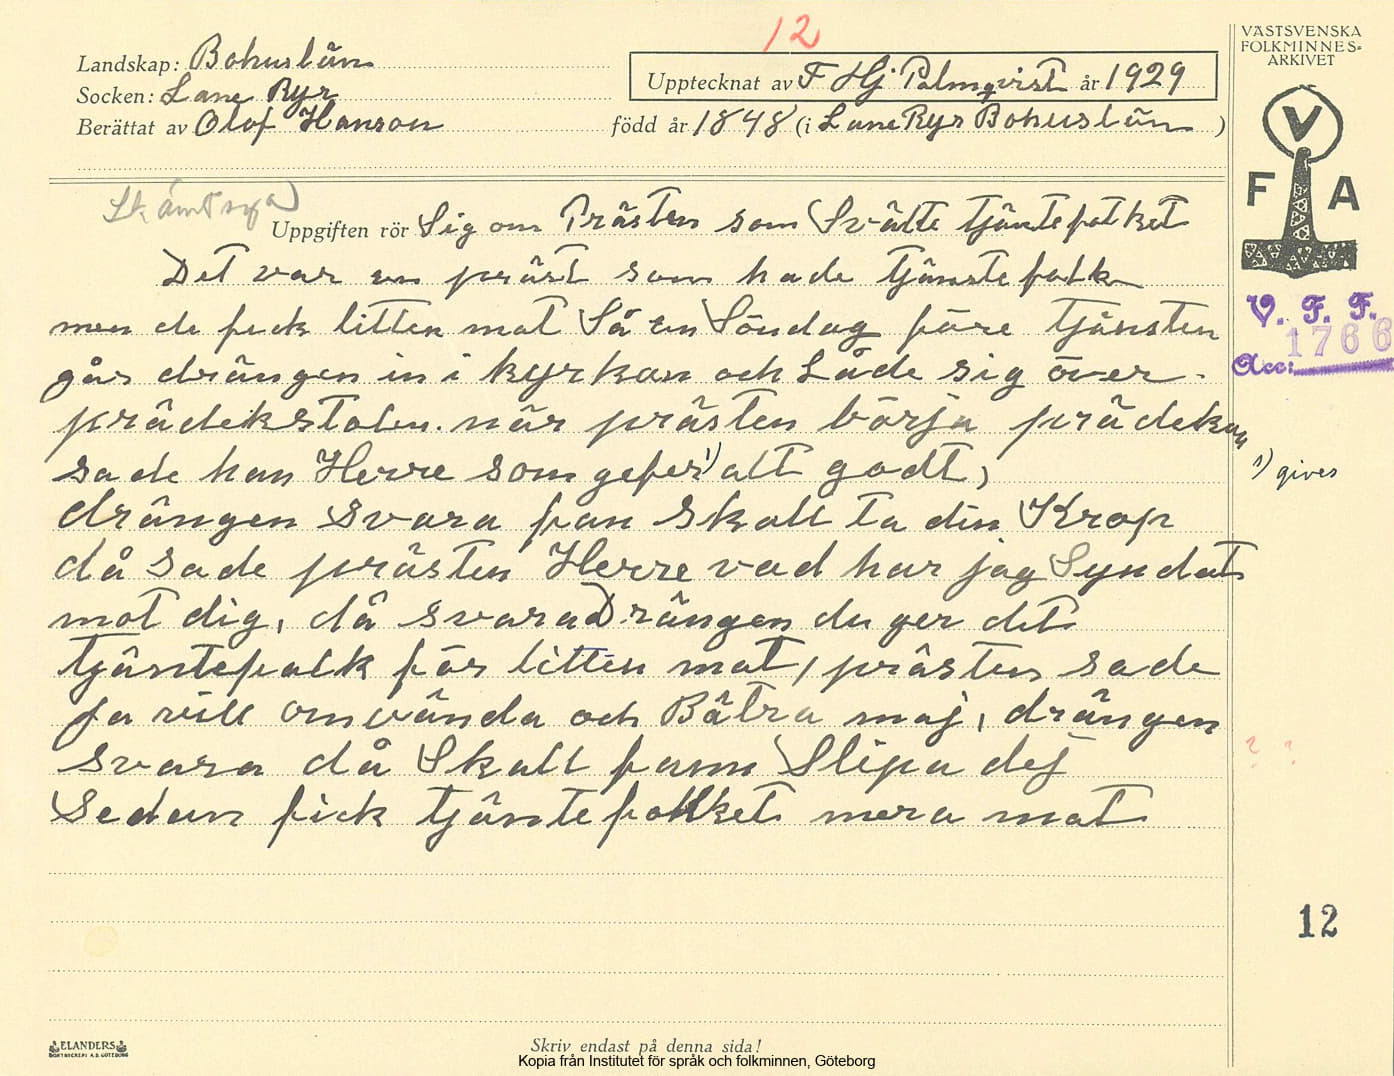 12
Landskap: Bohuslän
Socken: Lane Ryr
Berättat av Olof Hanson
Upptecknat av F Hj Palmqvist år 1929
född år 1848 (i Lane Ryr Bohuslän)
VÄSTSVENSKA
FOLKMINNES-
ARKIVET
V
F A
V. F. F.
1766
Acc:
Skämtsaga
Uppgiften rör Sig om Prästen som Svälte tjäntefolket
Det var en präst som hade tjänstefolk
men de feck litten mat Så en Söndag före tjänsten
går drängen in i kyrkan och Låde sig över
prädekstolen. när prästen börja prädeka
sade han Herre som gefer 1) alt godt,
drängen svara fan skall ta din Krop
då sade prästen Herre vad har jag Syndat
mot dig, då svara Drängen du ger det
tjäntefolk för litten mat, prästen sade
ja vill omvända och Bätra maj, drängen
svara då Skall fann Slipa dej
Sedan fick tjäntefolkket mera mat
1) gives
? ?
12
ELANDERS
BOKTRYCKERI A.B. GÖTEBORG
Skriv endast på denna sida!
Kopia från Institutet för språk och folkminnen, Göteborg